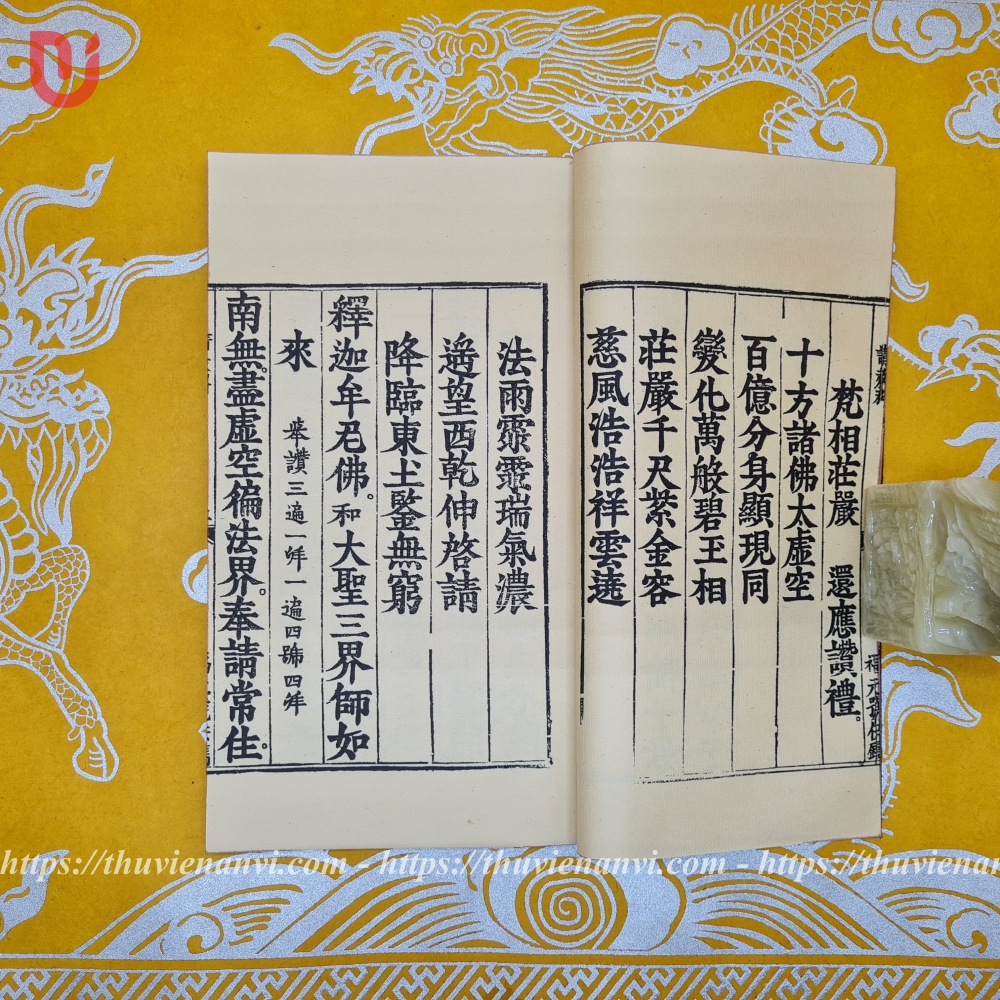 梵相莊嚴　還應讚禮。
十方諸佛太虛空
百億分身顯現同
變化萬般碧玉相
莊嚴千尺紫金容
慈風浩浩祥雲遶
法雨霏霏瑞氣濃
遥望西乾伸啓請
降臨東土鑒無窮
釋迦牟尼佛。和大聖三界師如
來　舉讚三遍一拜一遍四號四拜
南無。盡虛空徧法界。奉請常住。
https://thuvienanvi.com - https://thuvienanvi.com - https://thuvienanvi